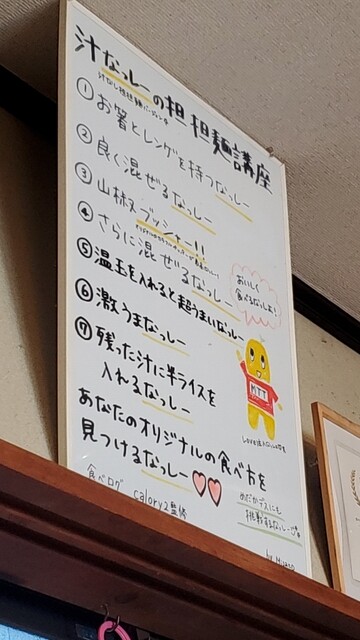 汁なっしーの担担麺講座
①お箸とレンゲを持つなっしー
②良く混ぜるなっしー
③山椒ブッシャー!!
④さらに混ぜるなっしー
⑤温玉を入れると超うまいなっしー
⑥激うまなっしー
⑦残った汁に半ライスを
入れるなっしー
あなたのオリジナルの食べ方を
見つけるなっしー
おいしく
食べるなっしょ!
MTT
食べログ calory2監修
めだかデスにも
挑戦するなっしー